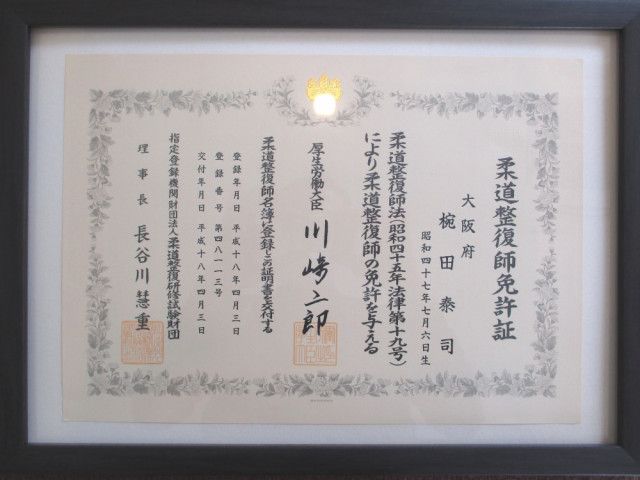 柔道整復師免許証
大阪府
椀田泰司
昭和四十七年七月六日生
柔道整復師法(昭和四十五年法律第十九号)
により柔道整復師の免許を与える
厚生労働大臣 川崎二郎
柔道整復師名簿に登録しこの証明書を交付する
登録年月日 平成十八年四月三日
登録番号 第四八一一三号
交付年月日 平成十八年四月三日
指定登録機関財団法人柔道整復研修試験財団
理事長 長谷川慧重